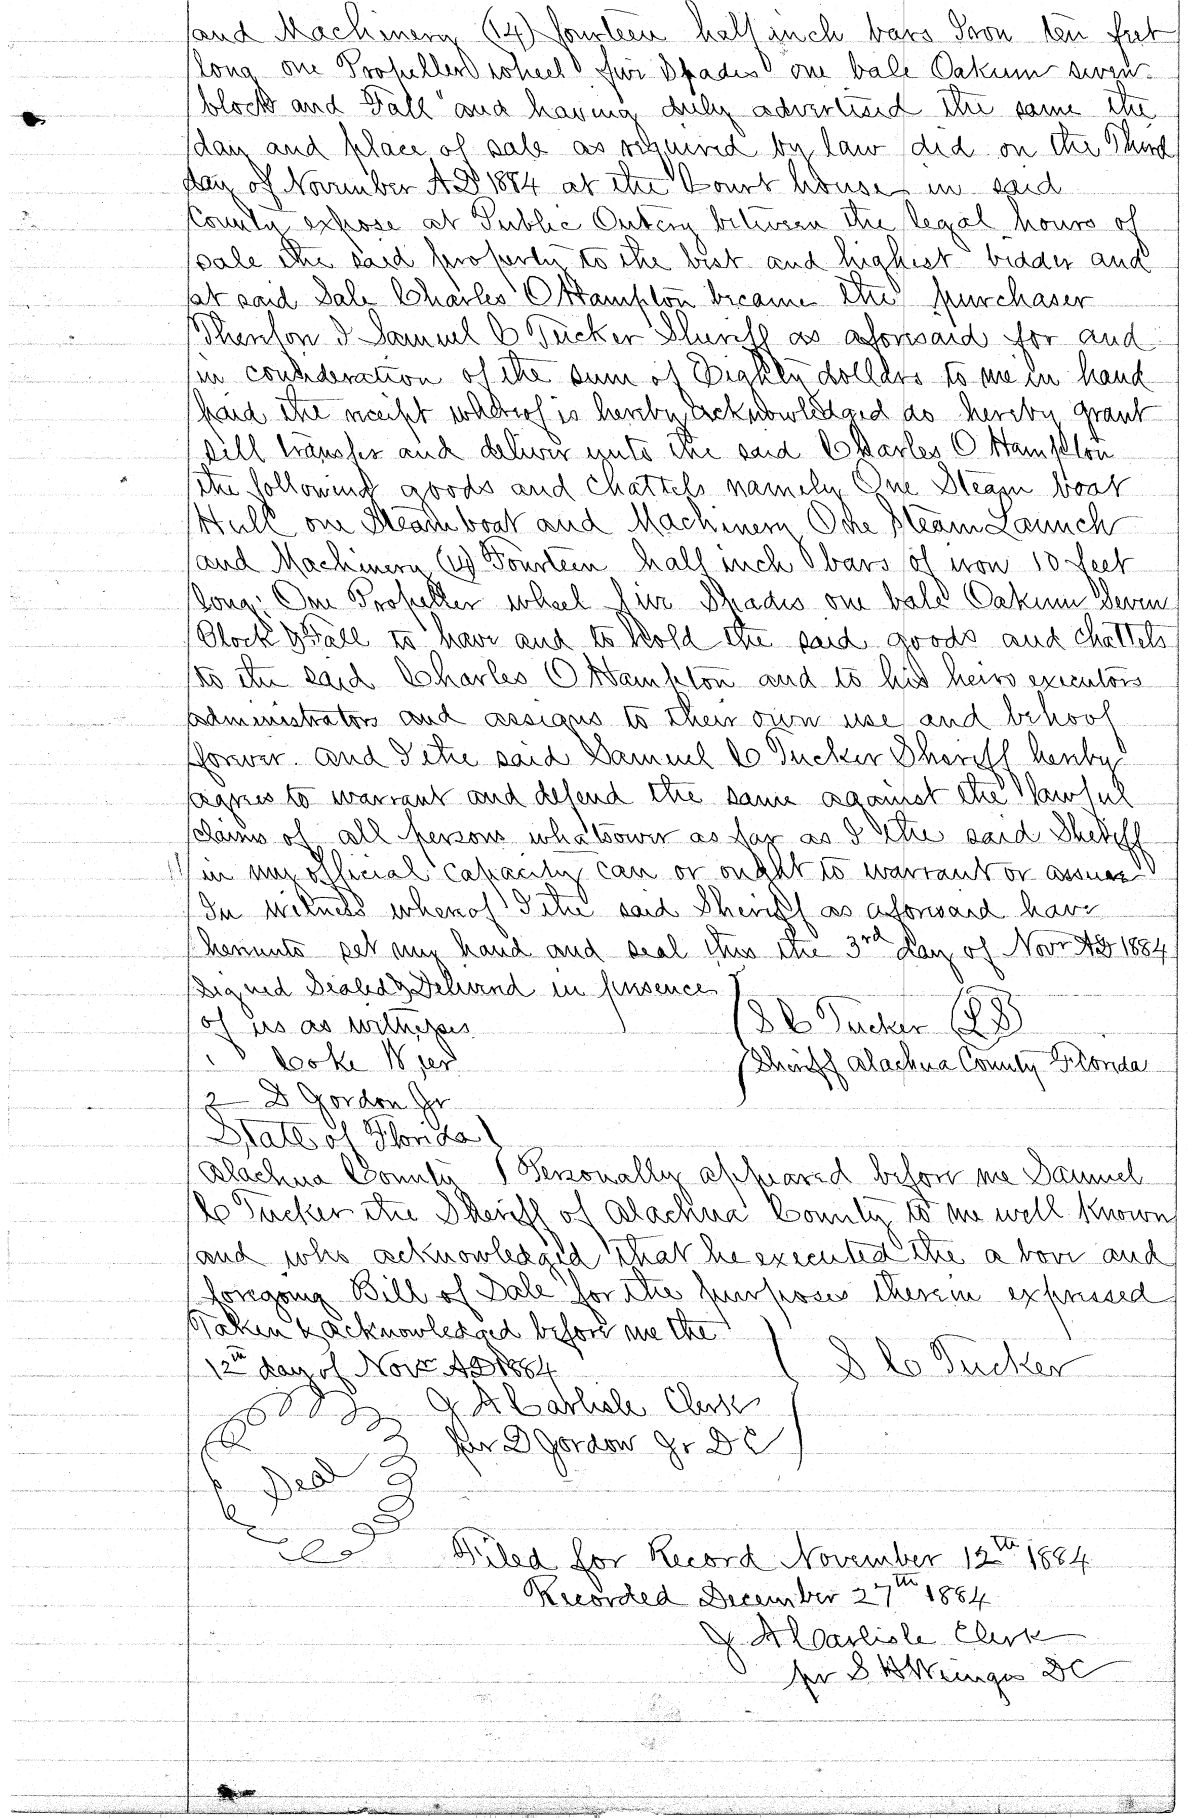 and Machinery (14) fourteen half inch bars Iron ten feet
long one Propeller wheel five Spades one bale Oakum seven
block and Fall" and having duly advertised the same the
day and place of sale as required by law did on the Third
day of November AD 1884 at the Court house in said
County expose at Public Outcry between the legal hours of
sale the said property to the best and highest bidder and
at said Sale Charles O Hampton became the purchaser
Therefore I Samuel C Tucker Sheriff as aforesaid for and
in consideration of the sum of Eighty dollars to me in hand
paid the receipt whereof is hereby acknowledged do hereby grant
sell transfer and deliver unto the said Charles O Hampton
the following goods and chattels namely One Steam boat
Hull one Steamboat and Machinery One Steam Launch
and Machinery (14) Fourteen half inch bars of iron 10 feet
long. One Propeller wheel five Spades one bale Oakum Seven
Block & Fall to have and to hold the said goods and chattels
to the said Charles O Hampton and to his heirs executors
administrators and assigns to their own use and behoof
forever. and I the said Samuel C Tucker Sheriff hereby
agrees to warrant and defend the same against the lawful
claims of all persons whatsoever as far as I the said Sheriff
in my official capacity can or ought to warrant or assure
In witness whereof I the said Sheriff as aforesaid have
hereunto set my hand and seal this the 3rd day of Novr AD 1884
Signed Sealed & Delivered in presence
of us as witnesses S C Tucker (LS)
1 Coke Wier Sheriff Alachua County Florida
2 D Gordon Jr
State of Florida
Alachua County Personally appeared before me Samuel
C Tucker the Sheriff of Alachua County to me well known
and who acknowledged that he executed the above and
foregoing Bill of Sale for the purposes therein expressed
Taken & acknowledged before me the
12th day of Novr AD 1884 S C Tucker
J A Carlisle Clerk
per D Gordon Jr DC
Seal
Filed for Record November 12th 1884
Recorded December 27th 1884
J A Carlisle Clerk
pr S H DC